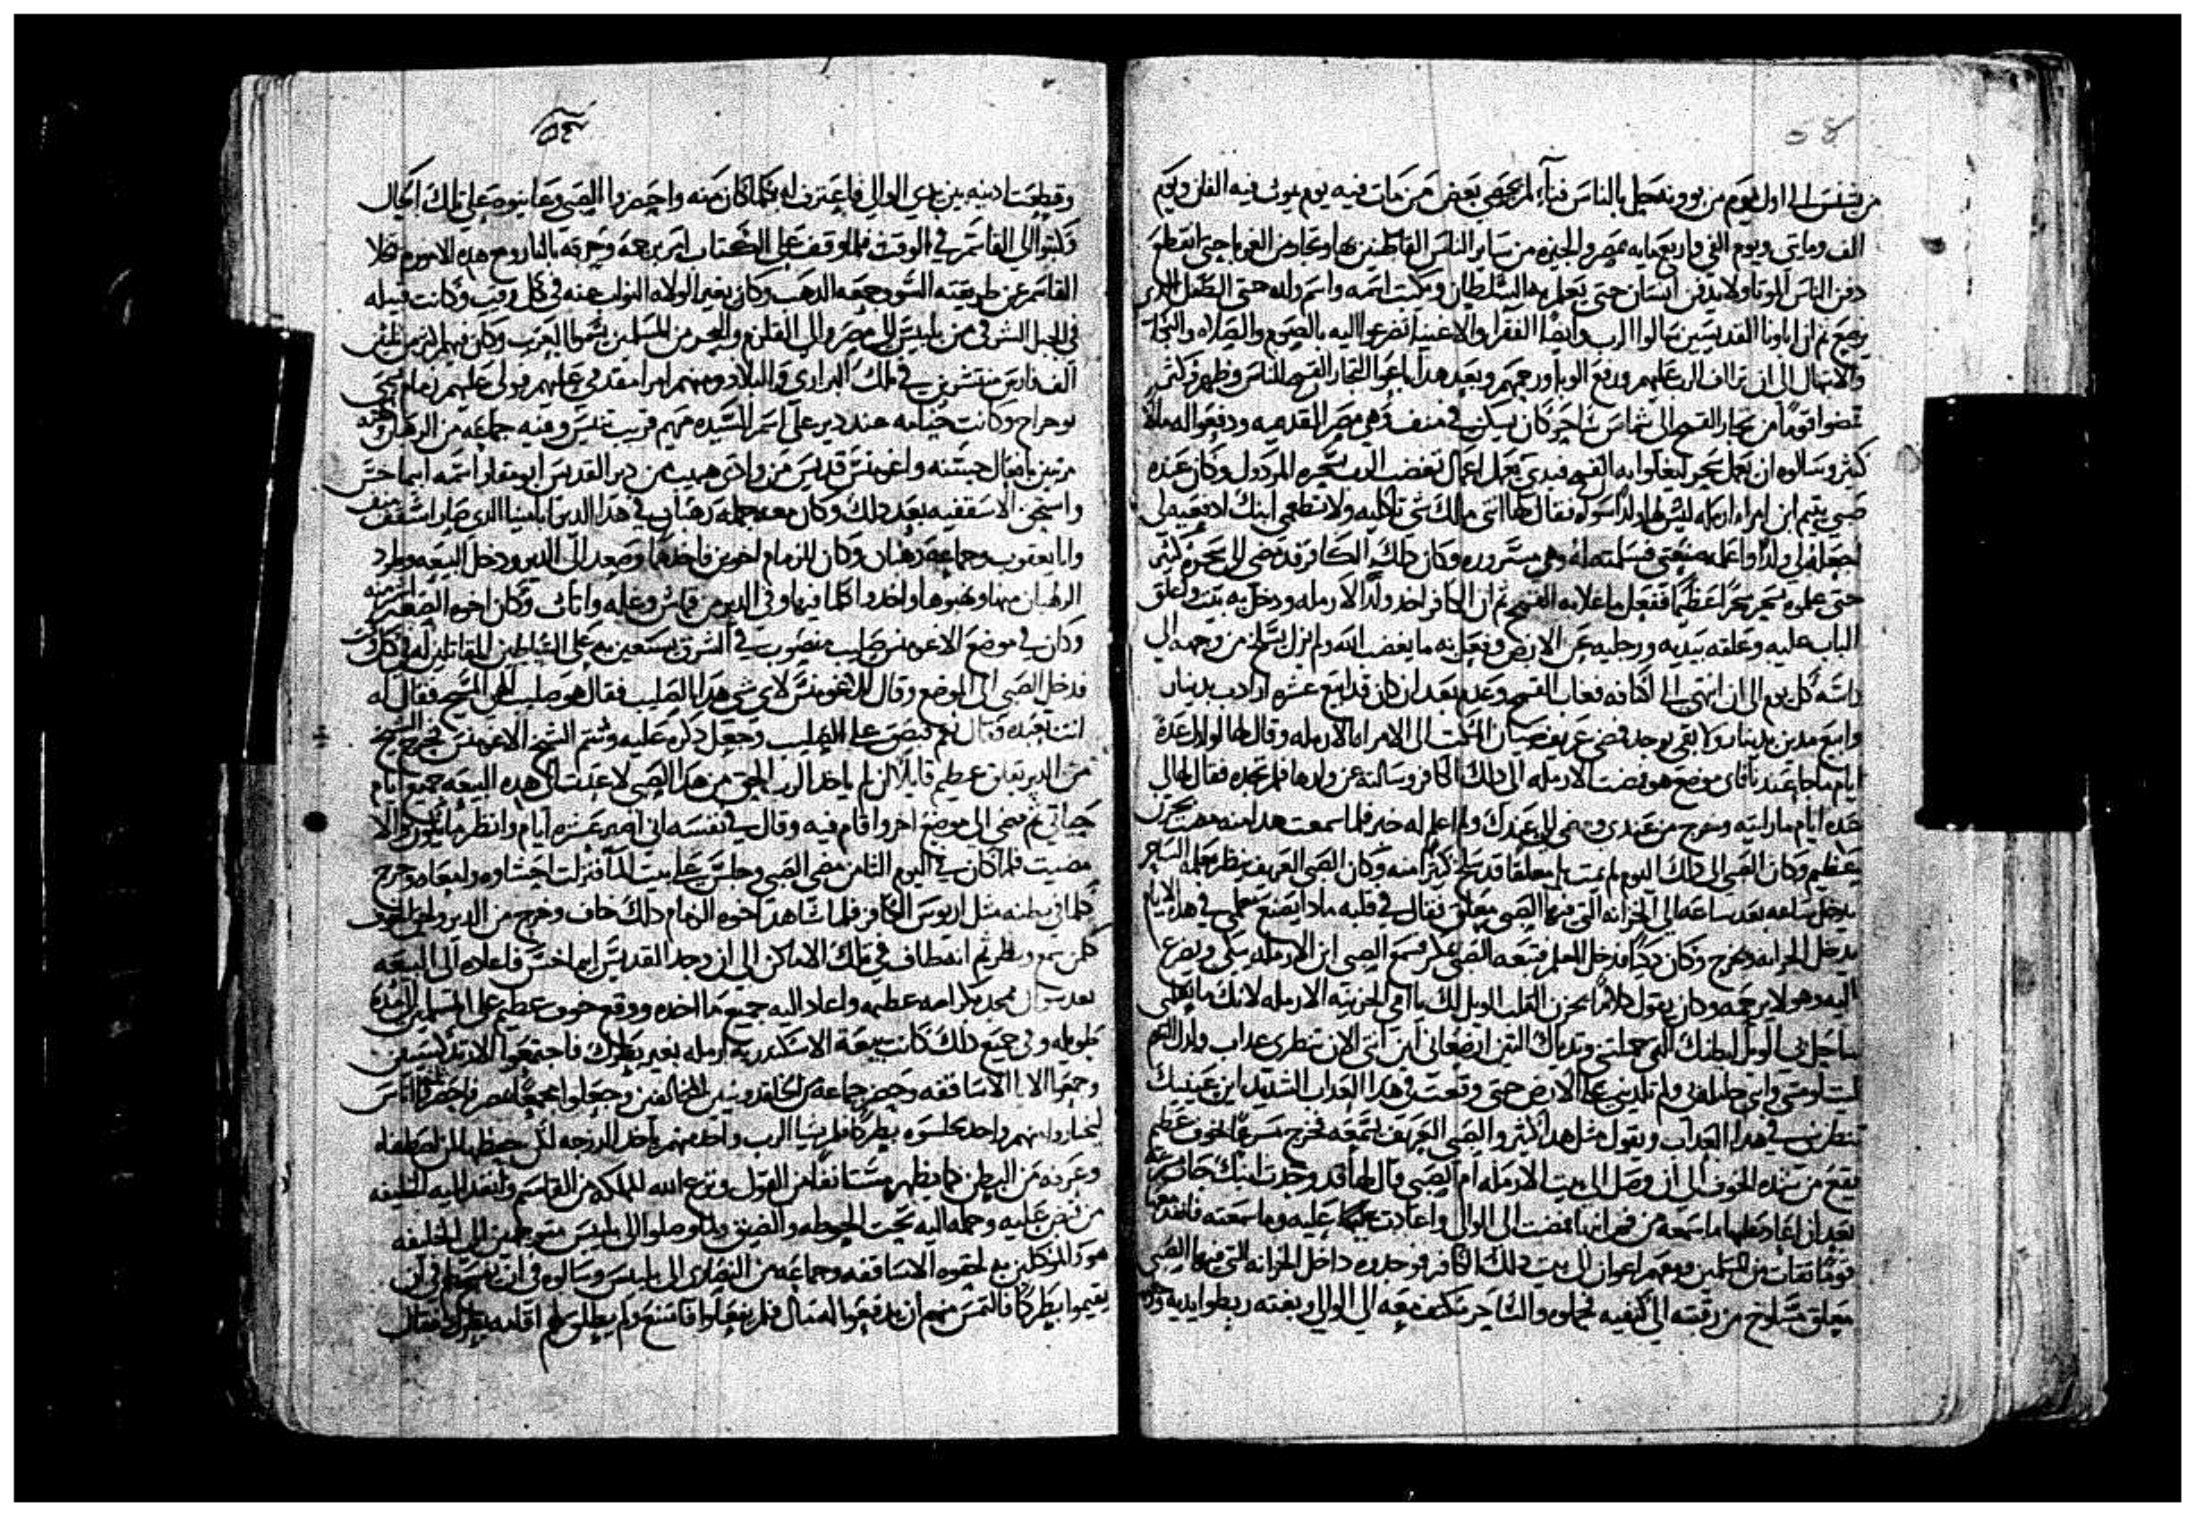 من بشنس الى اول يوم من بوونه حل بالناس فناء لم يحصى بعض من مات فيه يوم يموت فيه الفان ويوم
الف ومايتى ويوم الفي واربع مايه بمصر والجيزه من ساير الناس القاطنين بها وتجار من الغربا حتى انقطع
دفن الناس الموتا ولا يدفن انسان حتى يعلم به السلطان ويكتب اسمه واسم والده حتى الطفل الدي
يرضع ثم ان اباونا القديسين سالوا الرب وايضا الفقرا والاغنيا تضرعوا اليه بالصوم والصلاه والبكا
والابتهال الى ان تراف الرب عليهم ورفع الوبا ورحمهم وبعد هدا باعوا التجار القمح للناس وظهر وكثر
مضوا قوما من تجار القمح الى شماس ساحر كان يسكن في منف وهي مصر القديمه ودفعوا له مالا
كثير وسالوه ان يعمل سحر ليغلوا به القمح فبدى يعمل اعمال تغضب الرب بسحره المردول وكان عنده
صبي يتيم ابن امراه ارمله ليس لها ولد اسواه فقال لها انتى مالك شي تاكليه ولا تطعمي ابنك ادفعيه لي
اجعله لي ولدا واعلمه صنعتي فسلمته له وهي مسروره وكان دلك الكافر قد مضى الى سحره كثير
حتى علموه سحر سحرا عظيما ففعل ما غلا به القمح ثم ان الكافر اخد ولد الارمله ودخل به بيت وغلق
الباب عليه وعلقه بيديه ورجليه عن الارض وفعل به ما يغضب الله ولم يزل يسلخ من وجهه الى
راسه كل يوم الى ان انتهى الى اكتافه فغاب القمح وعدم بعد ان كان قد ابيع عشره ارادب بدينار
وابيع مدين بدينار ولا بقى يوجد فمضى عريف صبيان المكتب الى الامراه الارمله وقال لها لولدك عدة
ايام ما جا عندنا فاى موضع هو فمضت الارمله الى دلك الكافر وسالته عن ولدها فلم تجده فقال لها لي
عده ايام ما رايته وخرج من عندى ومضى الى عندك ولم اعلم له خبر فلما سمعت هدا منه مضت بحزن
عظيم وكان الصبى الى دلك اليوم لم يمت بل معلقا قد سلخ كثيرا منه وكان الصبى العريف ينظر معلمه الساحر
يدخل ساعه بعد ساعه الى الخزانه التى فيها الصبى معلق فقال في قلبه مادا يصنع معلمى في هده الايام
يدخل الخزانه ويخرج وكان دكيا فدخل المعلم فتبعه الصبى بمكر فسمع الصبى ابن الارمله يبكى ويضرع
اليه وهو لا يرحمه وكان يقول كلاما يحزن القلب الويل لك يا امي الحزينه الارمله لانك ما تعلمى
ما حل بى الويل لبطنك التي حملتنى وتدياك التين ارضعانى اين انتى الان تنظرى عداب ولدك اليتيم
ليت لو متى وانتى حامله بى ولم تلدينى على الارض حتى وقعت في هدا العداب الشديد اين عينيك
تنظرينى في هدا العداب ويقول مثل هدا كثير والصبى العريف يسمعه فخرج مسرعا بخوف عظيم
يقع من شده الخوف الى ان وصل الى بيت الارمله ام الصبى وقال لها قد وجدت ابنك
بعد ان اعاد عليها ما سمعه من فم ابنها فمضت الى الوالي واعادت عليه وما سمعته فانفد معها
قوما ثقات من المسلمين ومعهم اعوان الى بيت دلك الكافر فوجدوه داخل الخزانه التى فيها الصبى
معلق مسلوخ من رقبته الى كتفيه فحملوه والساحر مكتف معه الى الوالي وبغته ربطوا يديه
وقطعت ادنيه بين يدي الوالي فاعترف له بكلما كان منه واحضروا الصبى وعاينوه على تلك الحال
وكتبوا الى القاسم في الوقت فلما وقف على الكتاب امر برجمه وحرقه بالنار ومع هده الامور لم يتخلا
القاسم عن طريقته السوء وجمعه الدهب وكان يغير الولاه النواب عنه في كل وقت وكانت قبيله
في الجبل الشرقى من بلبيس الى مصر والى القلزم والبحر من المسلمين يسموا العرب وكان فيهم اكثر من تلتين
الف فارس منتشرين في تلك البرارى والبلاد ومنهم امرا مقدمين عليهم فولى عليهم زمام يسمى
بوجراح وكانت خيامه عند دير على اسم السيده مريم قريب تنيس وفيه جماعه من الرهبان
مرتين بافعال حسنه واغومنس قديس من وادى هبيب من دير القديس ابو مقار اسمه ابيماخس
واستحق الاسقفيه بعد دلك وكان معه جمله رهبان في هدا الدير انبا مينا الدي صار اسقف منف
وانبا يعقوب وجماعه رهبان وكان للزمام اخوين فاخدهما وصعد الى الدير ودخل البيعه وطرد
الرهبان منها ونهبوها واخدوا كلما فيها وفي الدير من قماش وغله واتات وكان اخوه الصغير اشر منه
وكان في موضع الاغومنس صليب منصوب في الشرق يستعين به على الشياطين المقاتلين له في كل وقت
فدخل الصبى الى الموضع وقال للاغومنس لاى شى هدا الصليب فقال هو صليب الهى المسيح فقال له
انت تعبده فقال نعم فبصق على الصليب وجعل دكره عليه وشتم الشيخ الاغومنس فخرج الشيخ
من الدير بقلق عظيم قايلا ان لم ياخد الرب الحق من هدا الصبى لا عدت الى هده البيعه جميع ايام
حياتى ثم مضى الى موضع اخر واقام فيه وقال في نفسه انى اصبر عشره ايام وانظر ما يكون والا
مضيت فلما كان في اليوم الثامن مضى الصبى وجلس على بيت الما فنزلت احشاوه وامعاه وخرج
كلما في بطنه مثل اريوس الكافر فلما شاهد اخوه الزمام دلك خاف وخرج من الدير ولحق الخوف
كلمن سمع ونظر ثم انه طاف في تلك الاماكن الى ان وجد القديس ابيماخس فاعاده الى البيعه
بعد سوال بمجد وكرامه عظيمه واعاد اليه جميع ما اخده ووقع خوف عظيم على المسلمين مده
طويله وفي جميع دلك كانت بيعة الاسكندريه ارمله بغير بطرك فاجتمعوا الارتدكسيين
وجمعوا الابا الاساقفه وحضر جماعه من الخلقدونيين المخالفين وجعلوا مجمعا بمصر واحضروا اناس
ليختاروا منهم واحد يجلسوه بطركا فلم يشا الرب واحد منهم ياخد الدرجه لكن حفظها لمن اصطفاه
وعرفه من البطن كما يظهر مستانفا من القول ونزع الله المملكه من القاسم وانفد اليه الخليفه
من قبض عليه وحمله اليه تحت الحوطه والضيق ولما وصلوا الى بلبيس متوجهين الى الخليفه
هو والموكلين به لحقوه الاساقفه وجماعه من النصارى الى بلبيس وسالوه في ان يفسح لهم في ان
يقيموا بطركا فالتمس منهم ان يدفعوا له مال فلم يفعلوا فامتنع ولم يطلق لهم اقامه بطرك فقال